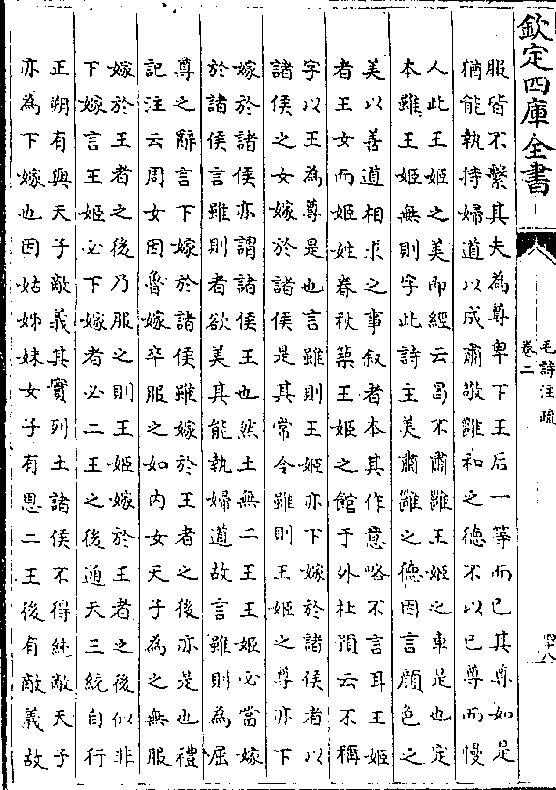 欽定四庫全書
毛詩注疏
卷二
四十八
服皆不繫其夫為尊卑下王后一等而已其尊如是
猶能執持婦道以成肅敬雝和之德不以己尊而慢
人此王姬之美即經云曷不肅雝王姬之車是也定
本雖王姬無則字此詩主美肅雝之德因言顏色之
美以善道相求之事叙者本其作意略不言耳王姬
者王女而姬姓春秋築王姬之館于外杜預云不稱
字以王為尊是也言雖則王姬亦下嫁於諸侯者以
諸侯之女嫁於諸侯是其常今雖則王姬之尊亦下
嫁於諸侯亦謂諸侯王也然土無二王王姬必當嫁
於諸侯言雖則者欲美其能執婦道故言雖則為屈
尊之辭言下嫁於諸侯雖嫁於王者之後亦是也禮
記注云周女因魯嫁卒服之如內女天子為之無服
嫁於王者之後乃服之則王姬嫁於王者之後似非
下嫁言王姬必下嫁者必二王之後通天三統自行
正朔有與天子敵義其實列土諸侯不得純敵天子
亦為下嫁也因姑姊妹女子有恩二王後有敵義故